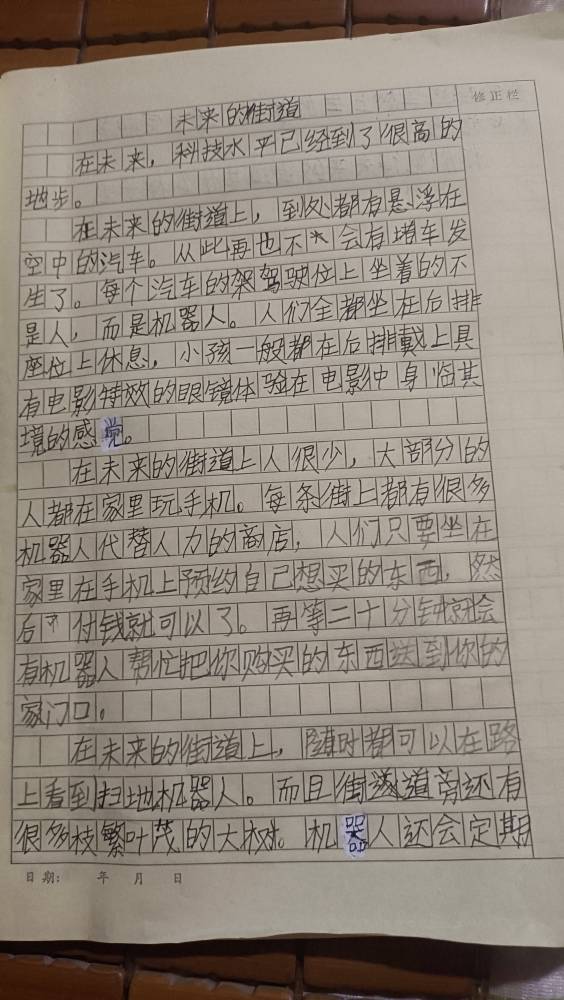 修正栏
未来的街道
在未来，科技水平已经到了很高的
地步。
在未来的街道上，到处都有悬浮在
空中的汽车。从此再也不会有堵车发
生了。每个汽车的驾驶位上坐着的不
是人，而是机器人。人们全都坐在后排
座位上休息，小孩一般都在后排戴上具
有电影特效的眼镜体验在电影中身临其
境的感觉。
在未来的街道上人很少，大部分的
人都在家里玩手机。每条街上都有很多
机器人代替人力的商店，人们只要坐在
家里在手机上预约自己想买的东西，然
后付钱就可以了。再等二十分钟就会
有机器人帮忙把你购买的东西送到你的
家门口。
在未来的街道上，随时都可以在路
上看到扫地机器人。而且街道旁还有
很多枝繁叶茂的大树。机器人还会定期
日期： 年 月 日